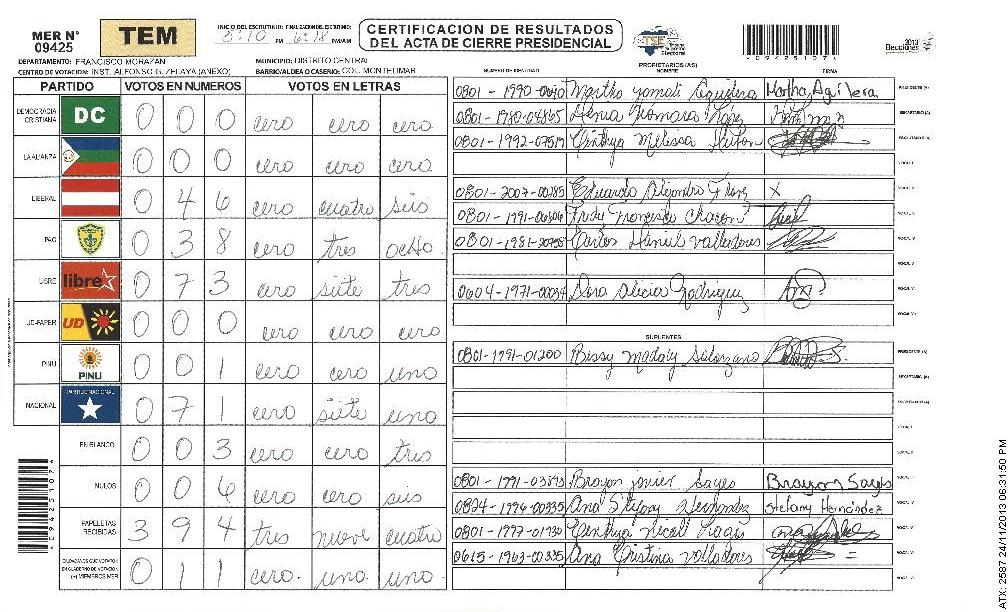 MER N° 09425
TEM
INICIO DEL ESCRUTINIO: FINALIZACION DEL ESCRUTINIO:
5:10 PM 6:18 PM/AM
CERTIFICACIÓN DE RESULTADOS
DEL ACTA DE CIERRE PRESIDENCIAL
TSE
Tribunal Supremo Electoral
09425107
2013 Elecciones
DEPARTAMENTO: FRANCISCO MORAZAN
MUNICIPIO: DISTRITO CENTRAL
CENTRO DE VOTACION: INST. ALFONSO G. ZELAYA (ANEXO)
BARRIO/ALDEA O CASERIO: COL. MONTELIMAR
PARTIDO VOTOS EN NUMEROS VOTOS EN LETRAS
DEMOCRACIA CRISTIANA DC 0 0 0 cero cero cero
LA ALIANZA 0 0 0 cero cero cero
LIBERAL 0 4 6 cero cuatro seis
PAC 0 3 8 cero tres ocho
LIBRE libre 0 7 3 cero siete tres
UD-FAPER UD 0 0 0 cero cero cero
PINU PINU 0 0 1 cero cero uno
NACIONAL PARTIDO NACIONAL 0 7 1 cero siete uno
EN BLANCO 0 0 3 cero cero tres
NULOS 0 0 6 cero cero seis
PAPELETAS RECIBIDAS 3 9 4 tres nueve cuatro
CIUDADANOS QUE VOTARON EN CUADERNO DE VOTACION (+) MIEMBROS MER 0 1 1 cero uno uno
*09425107*
NUMERO DE IDENTIDAD PROPIETARIOS(AS) NOMBRE FIRMA
0801-1990- Martha Yamali Aguilera Martha Aguilera PRESIDENTE (A)
0801-1980- Xiomara SECRETARIO (A)
0801-1992- Cinthya Melissa ESCRUTADOR (A)
VOCAL I
0801-2007-00285 Eduardo Alejandro X VOCAL II
0801-1991- Francisco Chacon VOCAL III
0801-1981- Carlos Daniel Valladares VOCAL IV
VOCAL V
0604-1971- Dora Alicia Rodriguez VOCAL VI
SUPLENTES
0801-1991-01200 Bessy Solorzano PRESIDENTE (A)
SECRETARIO (A)
ESCRUTADOR (A)
VOCAL I
VOCAL II
0801-1991-03893 Brayon javier Sayes Brayon Sayes
0824-1996-00335 Ana Stefany Hernandez Stefany Hernández
0801-1997-01930 Cinthya Nicoll
0615-1963-00335 Ana Cristina Valladares
ATX: 2587 24/11/2013 06:31:50 PM